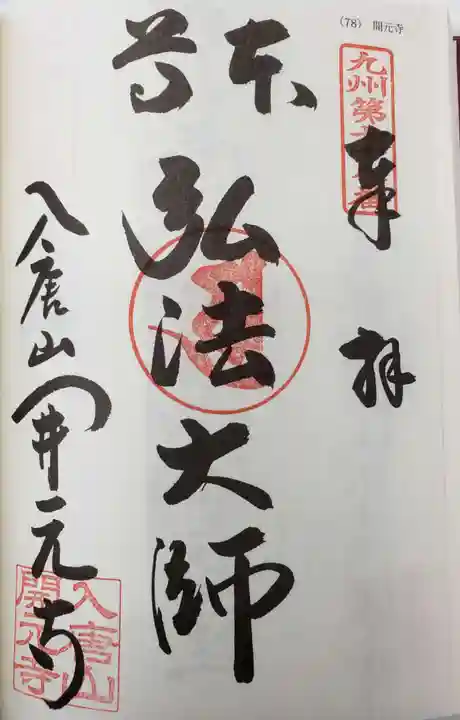 (78) 開元寺
九州第
奉拝
本尊
弘法大師
入唐山開元寺
入唐山
開元寺